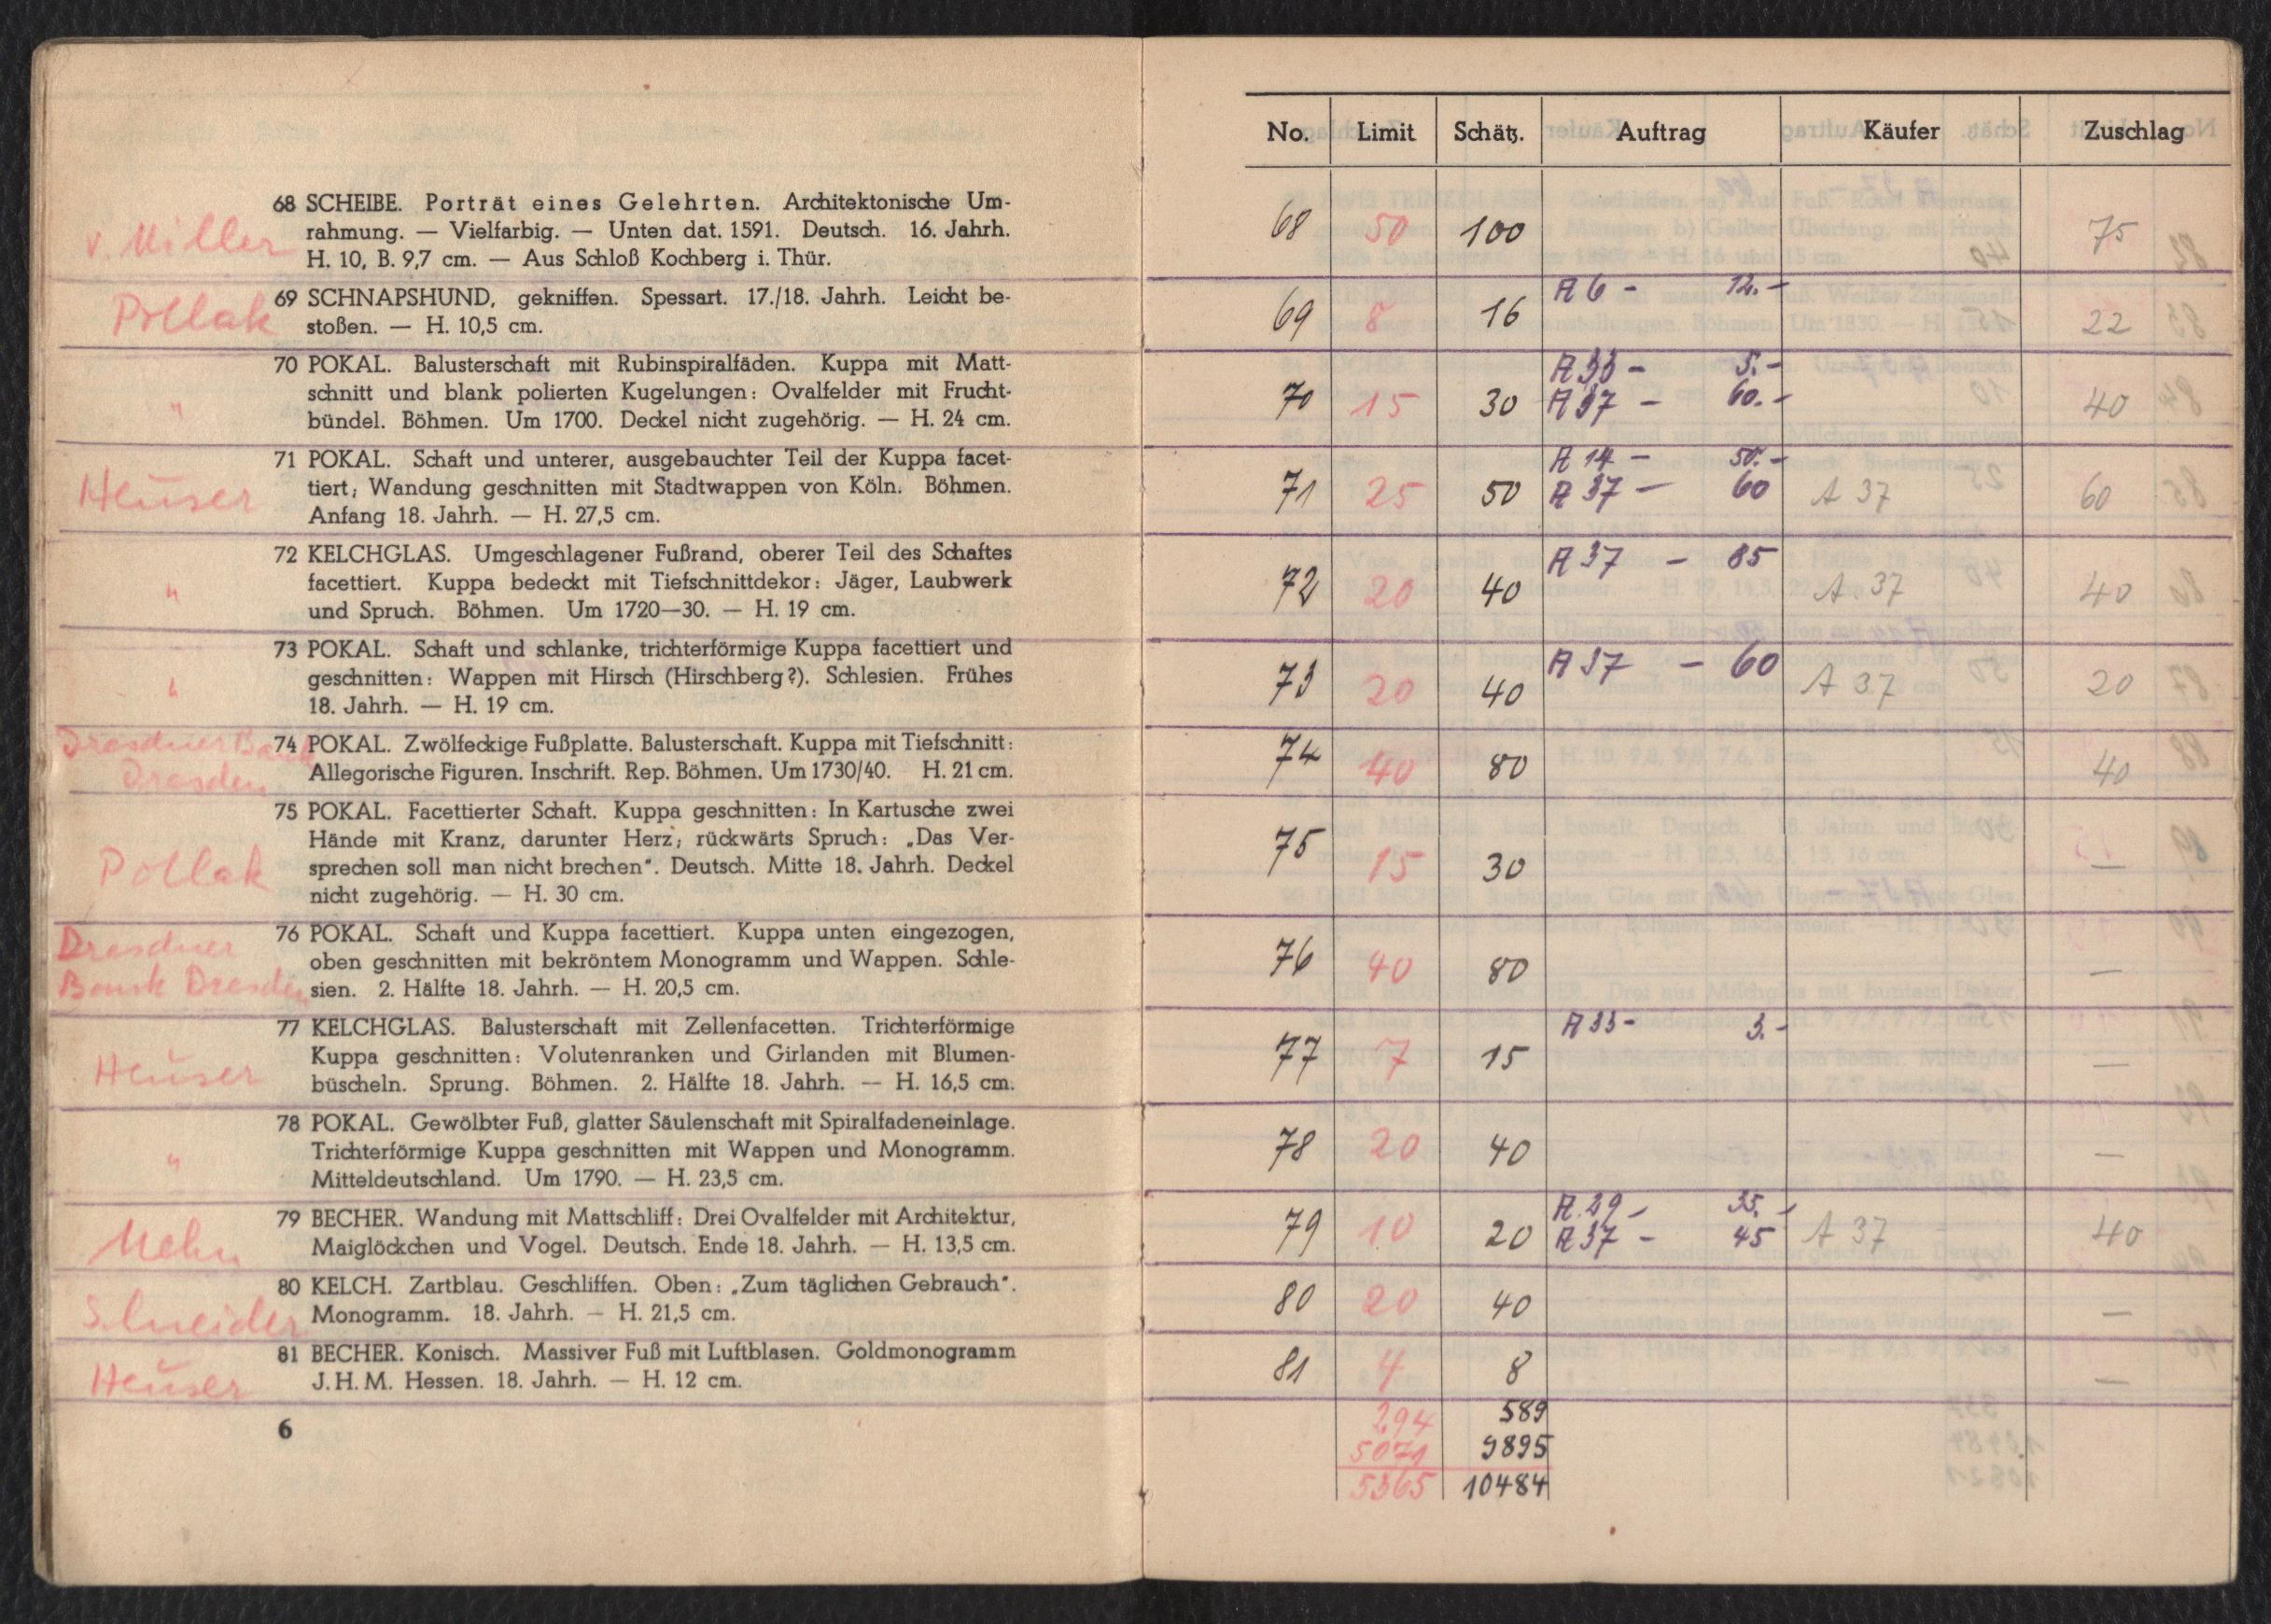 v. Miller
68 SCHEIBE. Porträt eines Gelehrten. Architektonische Um-
rahmung. — Vielfarbig. — Unten dat. 1591. Deutsch. 16. Jahrh.
H. 10, B. 9,7 cm. — Aus Schloß Kochberg i. Thür.
Pollak
69 SCHNAPSHUND, gekniffen. Spessart. 17./18. Jahrh. Leicht be-
stoßen. — H. 10,5 cm.
"
70 POKAL. Balusterschaft mit Rubinspiralfäden. Kuppa mit Matt-
schnitt und blank polierten Kugelungen: Ovalfelder mit Frucht-
bündel. Böhmen. Um 1700. Deckel nicht zugehörig. — H. 24 cm.
Heuser
71 POKAL. Schaft und unterer, ausgebauchter Teil der Kuppa facet-
tiert; Wandung geschnitten mit Stadtwappen von Köln. Böhmen.
Anfang 18. Jahrh. — H. 27,5 cm.
"
72 KELCHGLAS. Umgeschlagener Fußrand, oberer Teil des Schaftes
facettiert. Kuppa bedeckt mit Tiefschnittdekor: Jäger, Laubwerk
und Spruch. Böhmen. Um 1720—30. — H. 19 cm.
"
73 POKAL. Schaft und schlanke, trichterförmige Kuppa facettiert und
geschnitten: Wappen mit Hirsch (Hirschberg?). Schlesien. Frühes
18. Jahrh. — H. 19 cm.
Dresdner Bank
Dresden
74 POKAL. Zwölfeckige Fußplatte. Balusterschaft. Kuppa mit Tiefschnitt:
Allegorische Figuren. Inschrift. Rep. Böhmen. Um 1730/40. H. 21 cm.
Pollak
75 POKAL. Facettierter Schaft. Kuppa geschnitten: In Kartusche zwei
Hände mit Kranz, darunter Herz; rückwärts Spruch: „Das Ver-
sprechen soll man nicht brechen“. Deutsch. Mitte 18. Jahrh. Deckel
nicht zugehörig. — H. 30 cm.
Dresdner
Bank Dresden
76 POKAL. Schaft und Kuppa facettiert. Kuppa unten eingezogen,
oben geschnitten mit bekröntem Monogramm und Wappen. Schle-
sien. 2. Hälfte 18. Jahrh. — H. 20,5 cm.
Heuser
77 KELCHGLAS. Balusterschaft mit Zellenfacetten. Trichterförmige
Kuppa geschnitten: Volutenranken und Girlanden mit Blumen-
büscheln. Sprung. Böhmen. 2. Hälfte 18. Jahrh. — H. 16,5 cm.
"
78 POKAL. Gewölbter Fuß, glatter Säulenschaft mit Spiralfadeneinlage.
Trichterförmige Kuppa geschnitten mit Wappen und Monogramm.
Mitteldeutschland. Um 1790. — H. 23,5 cm.
79 BECHER. Wandung mit Mattschliff: Drei Ovalfelder mit Architektur,
Maiglöckchen und Vogel. Deutsch. Ende 18. Jahrh. — H. 13,5 cm.
Schneider
80 KELCH. Zartblau. Geschliffen. Oben: „Zum täglichen Gebrauch“.
Monogramm. 18. Jahrh. — H. 21,5 cm.
Heuser
81 BECHER. Konisch. Massiver Fuß mit Luftblasen. Goldmonogramm
J. H. M. Hessen. 18. Jahrh. — H. 12 cm.
6
No. Limit Schätz. Auftrag Käufer Zuschlag
68 50 100 75
A 6 - 12.-
69 8 16 22
A 33 - 5.-
70 15 30 A 37 - 60.- 40
A 14 - 50.-
71 25 50 A 37 - 60 A 37 60
A 37 - 85
72 20 40 A 37 40
A 37 - 60
73 20 40 A 37 20
74 40 80 40
75 15 30 —
76 40 80 —
A 33 - 3.-
77 7 15 —
78 20 40 —
A 29 - 35.-
79 10 20 A 37 - 45 A 37 40
80 20 40 —
81 4 8 —
294 589
5071 9895
5365 10484